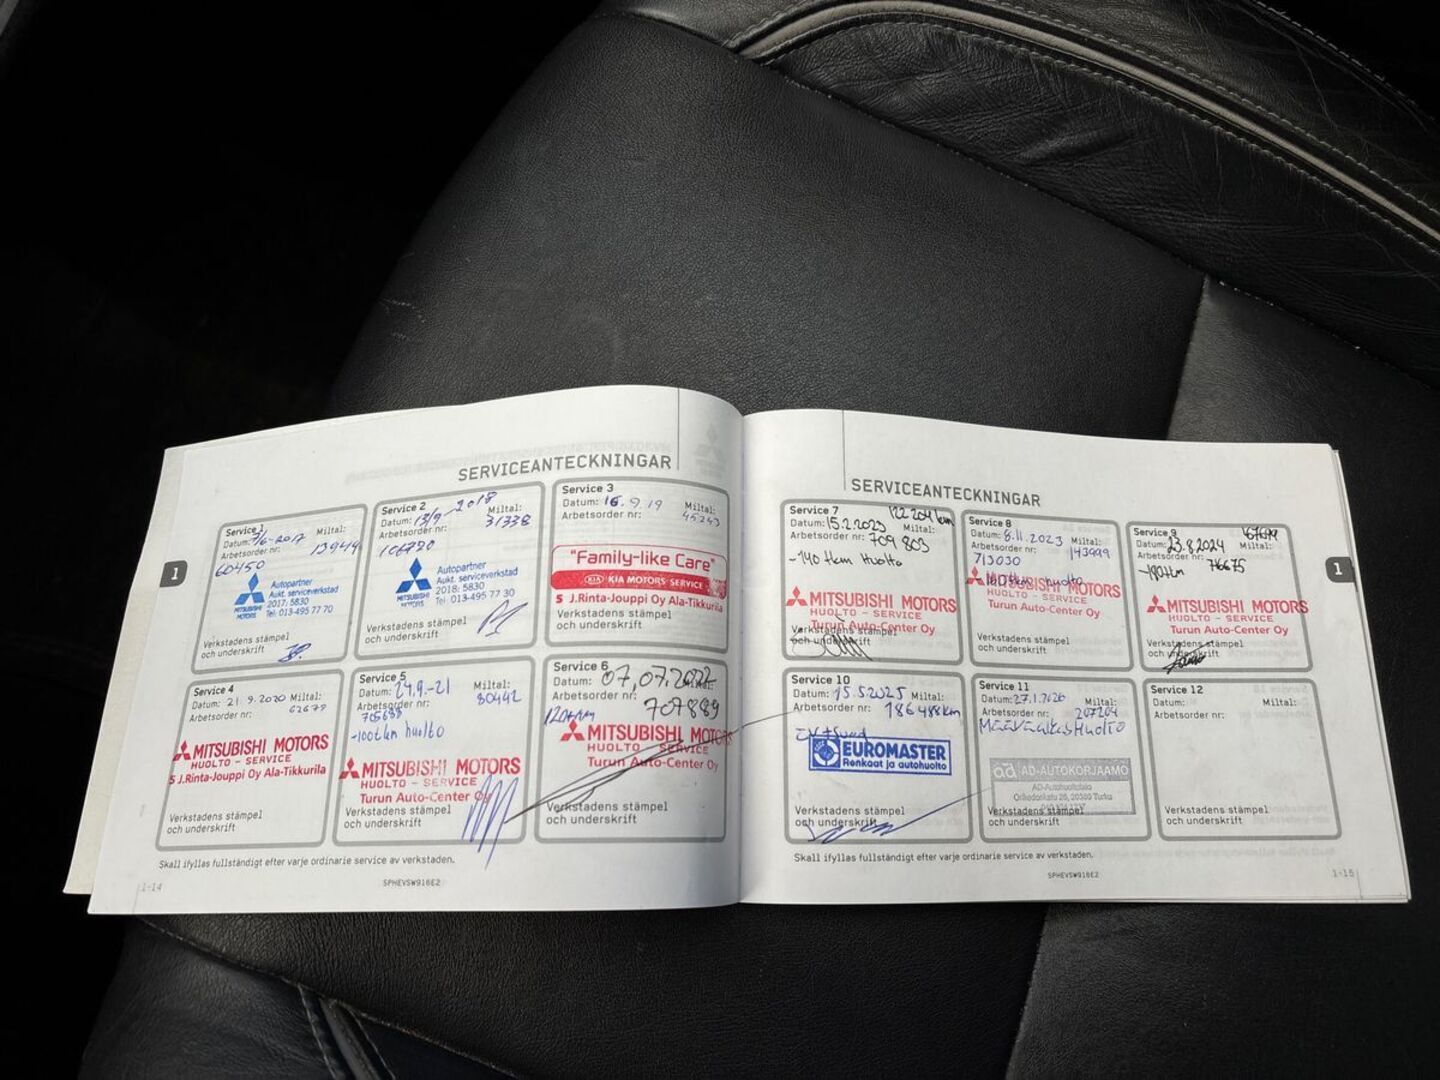 SERVICEANTECKNINGAR
Service 1
Datum: 7/6-2017 Miltal:
Arbetsorder nr: 13944
60450
Autopartner
Aukt. serviceverkstad
2017: 5830
Tel: 013-495 77 70
MITSUBISHI
MOTORS
Verkstadens stämpel
och underskrift
Service 2
Datum: 13/9-2018 Miltal:
Arbetsorder nr: 31338
106720
Autopartner
Aukt. serviceverkstad
2018: 5830
Tel: 013-495 77 30
MITSUBISHI
MOTORS
Verkstadens stämpel
och underskrift
Service 3
Datum: 16.9.19 Miltal:
Arbetsorder nr: 45243
"Family-like Care"
KIA KIA MOTORS SERVICE
S J.Rinta-Jouppi Oy Ala-Tikkurila
Verkstadens stämpel
och underskrift
Service 4
Datum: 21.9.2020 Miltal:
Arbetsorder nr: 62679
MITSUBISHI MOTORS
HUOLTO - SERVICE
S J.Rinta-Jouppi Oy Ala-Tikkurila
Verkstadens stämpel
och underskrift
Service 5
Datum: 24.9.-21 Miltal:
Arbetsorder nr: 80442
705688
-100tkm huolto
MITSUBISHI MOTORS
HUOLTO - SERVICE
Turun Auto-Center Oy
Verkstadens stämpel
och underskrift
Service 6
Datum: 07,07.2022 Miltal:
Arbetsorder nr: 707889
120tkm
MITSUBISHI MOTORS
HUOLTO - SERVICE
Turun Auto-Center Oy
Verkstadens stämpel
och underskrift
Skall ifyllas fullständigt efter varje ordinarie service av verkstaden.
1-14
SPHEVSW916E2
1
SERVICEANTECKNINGAR
Service 7 122204 km
Datum: 15.2.2023 Miltal:
Arbetsorder nr: 709803
-140 tkm Huolto
MITSUBISHI MOTORS
HUOLTO - SERVICE
Turun Auto-Center Oy
Verkstadens stämpel
och underskrift
Service 8
Datum: 8.11.2023 Miltal:
Arbetsorder nr: 143999
713030
160tkm huolto
MITSUBISHI MOTORS
HUOLTO - SERVICE
Turun Auto-Center Oy
Verkstadens stämpel
och underskrift
Service 9
Datum: 23.8.2024 Miltal:
Arbetsorder nr: 716675
-180tkm
MITSUBISHI MOTORS
HUOLTO - SERVICE
Turun Auto-Center Oy
Verkstadens stämpel
och underskrift
Service 10
Datum: 15.5.2025 Miltal:
Arbetsorder nr: 186488km
EUROMASTER
Renkaat ja autohuolto
Verkstadens stämpel
och underskrift
Service 11
Datum: 27.1.2026 Miltal:
Arbetsorder nr: 207204
Määräaikas Huolto
ad AD-AUTOKORJAAMO
AD-Autohuoltotalo
Verkstadens stämpel
och underskrift
Service 12
Datum: Miltal:
Arbetsorder nr:
Verkstadens stämpel
och underskrift
Skall ifyllas fullständigt efter varje ordinarie service av verkstaden.
SPHEVSW916E2
1-15
1